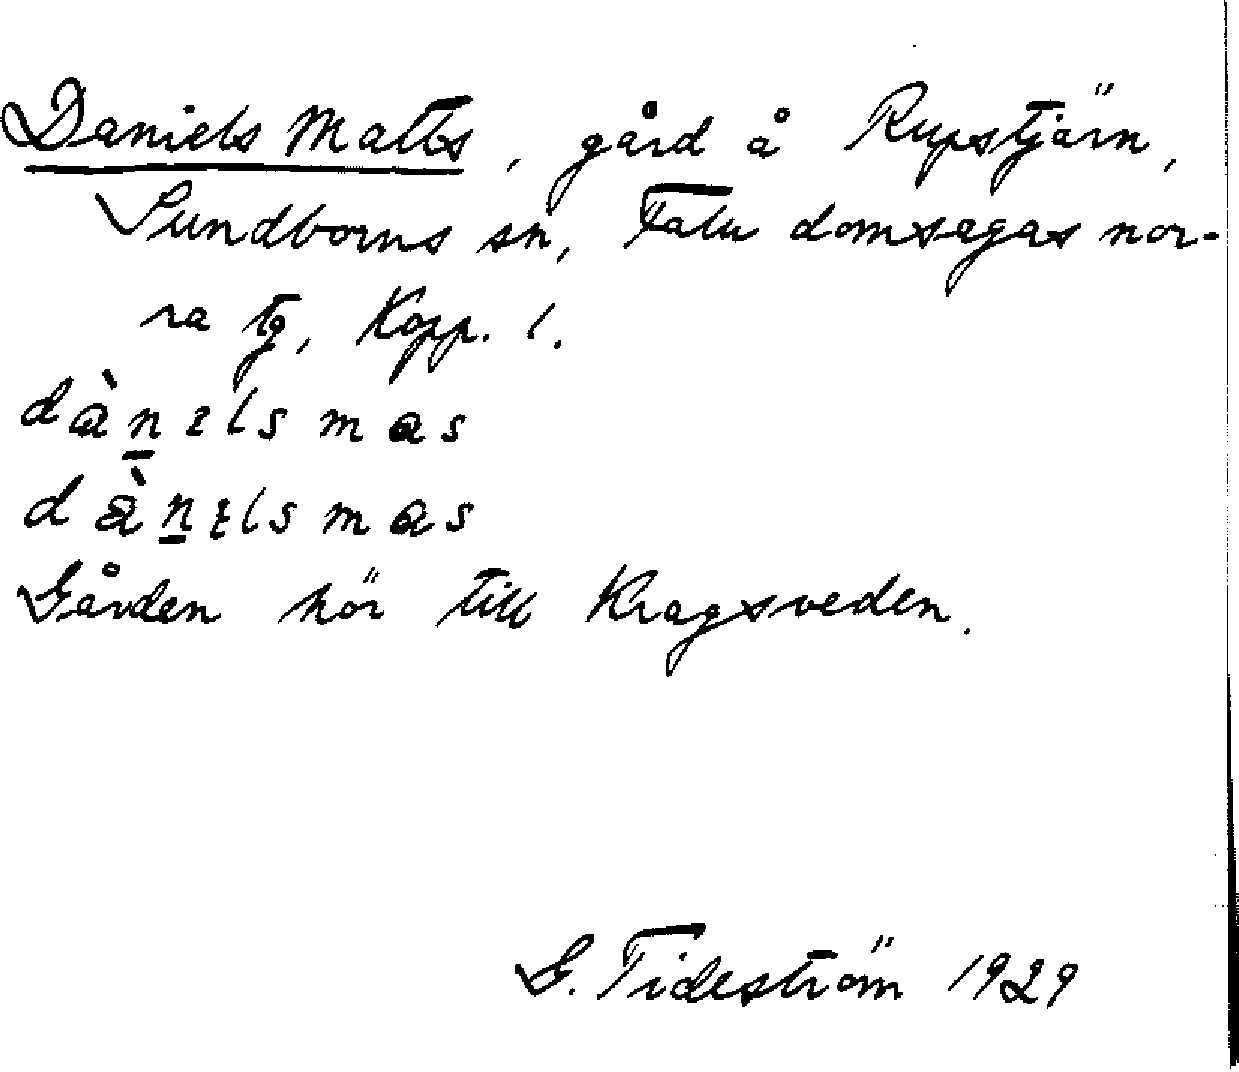 Daniels Matts, gård å Rupstjärn,
Sundborns sn, Falu domsagas nor-
ra tg, Kopp. l.
dàn̲ɩls mɑs
dàn̲ɩls mɑs
Gården hör till Kragsveden.
G. Tideström 1929